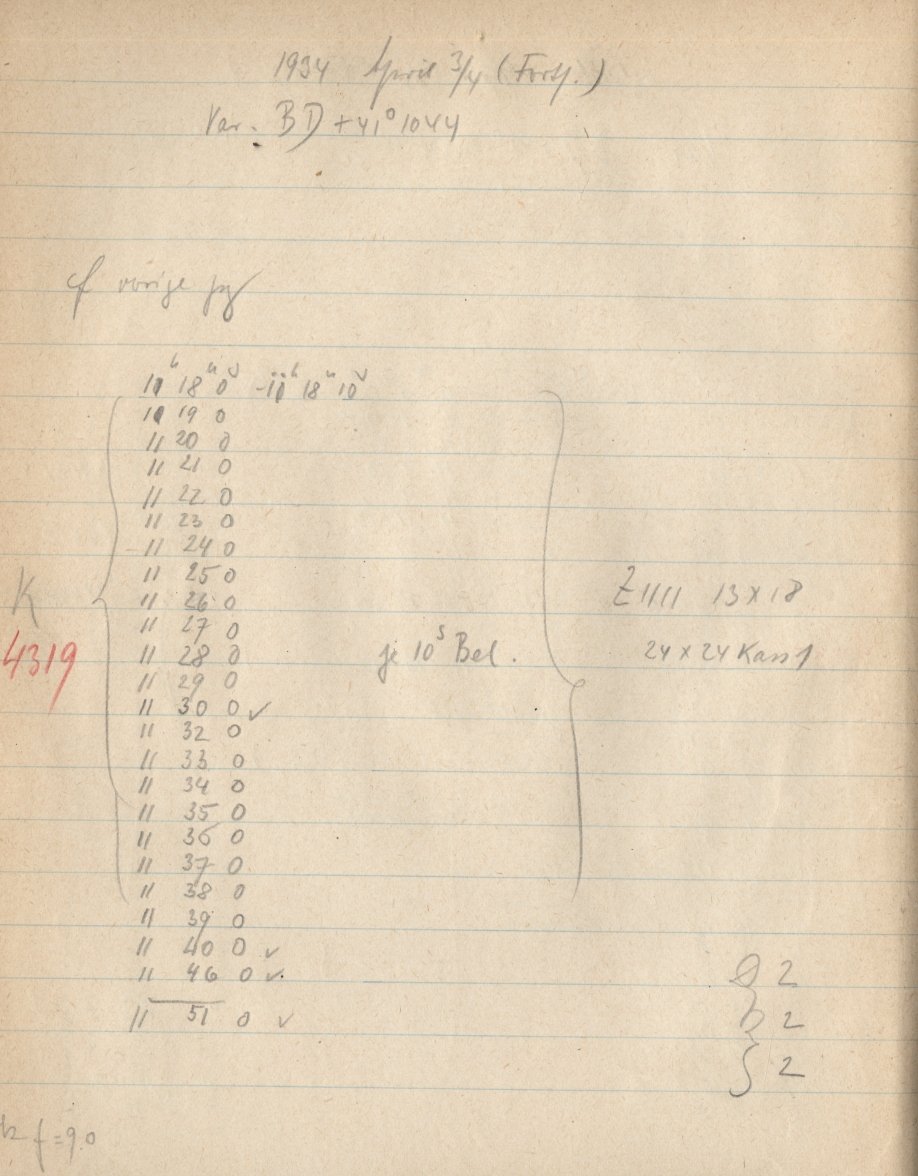 1934 April 3/4 (Forts.)
Var. BD +41° 1044
vorige
11h 18m 0s - 11h 18m 10s
11 19 0
11 20 0
11 21 0
11 22 0
11 23 0
11 24 0
11 25 0
11 26 0
11 27 0
11 28 0
11 29 0
11 30 0 ✓
11 32 0
11 33 0
11 34 0
11 35 0
11 36 0
11 37 0
11 38 0
11 39 0
11 40 0 ✓
11 46 0 ✓
11 51 0 ✓
K
4319
je 10s Bel.
Z 1111 13 x 18
24 x 24 Kass 1
2
b 2
2
f = 90